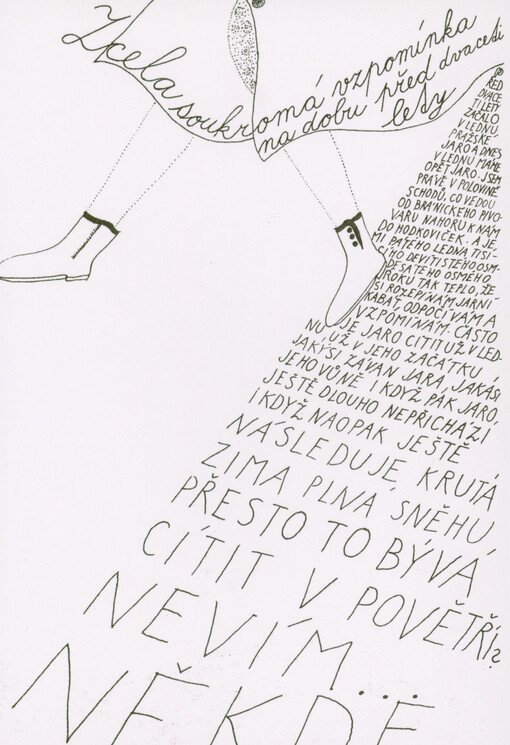 Zcela soukromá vzpomínka
na dobu před dvaceti
lety
PŘED
DVACE
TI LETY
ZAČALO
V LEDNU
PRAŽSKÉ
JARO A DNES
V LEDNU MÁME
OPĚT JARO. JSEM
PRÁVĚ V POLOVINĚ
SCHODŮ, CO VEDOU
OD BRANICKÉHO PIVO-
VARU NAHORU K NÁM
DO HODKOVIČEK. A JE,
MI PÁTÉHO LEDNA TISÍ-
CÍHO DEVÍTISTÉHO OSM-
DESÁTÉHO OSMÉHO
ROKU TAK TEPLO, ŽE
SI ROZEPÍNÁM JARNÍ
KABÁT, ODPOČÍVÁM A
VZPOMÍNÁM. ČASTO
JE JARO CÍTIT UŽ V LED-
NU, UŽ V JEHO ZAČÁTKU,
JAKÝSI ZÁVAN JARA, JAKÁSI
JEHO VŮNĚ I KDYŽ PAK JARO,
JEŠTĚ DLOUHO NEPŘICHÁZÍ
I KDYŽ NAOPAK JEŠTĚ
NÁSLEDUJE KRUTÁ
ZIMA PLNÁ SNĚHU,
PŘESTO TO BÝVÁ
CÍTIT V POVĚTŘÍ?
NEVÍM...
NĚKDE